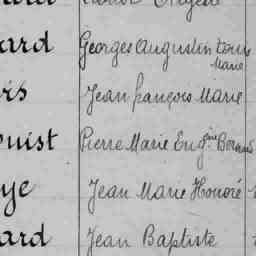 ard Georges Augustin Louis
Marie
rs Jean françois Marie
ouist Pierre Marie Eugène Bernard
ye Jean Marie Honoré
ard Jean Baptiste